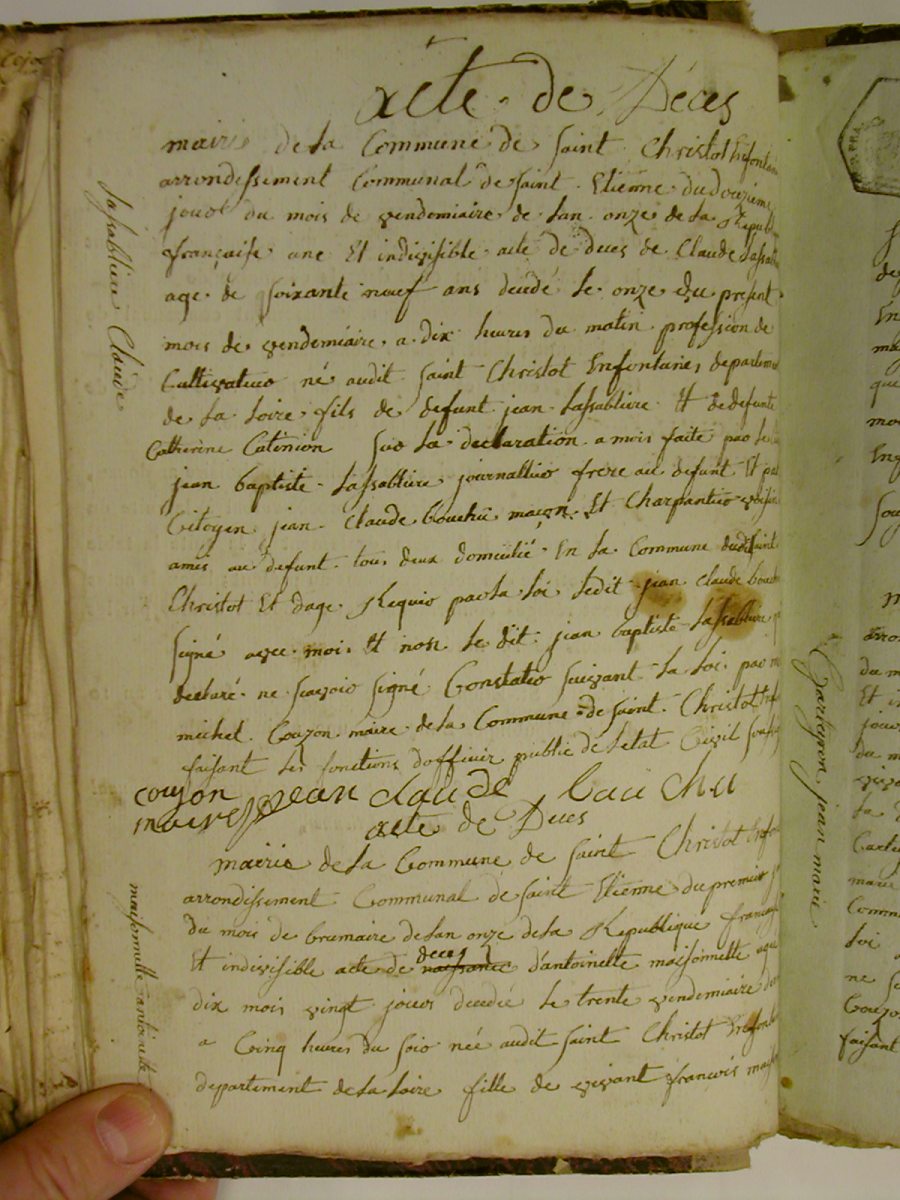 acte de Déces
mairie de la Commune de Saint Christot Enfontanes
arrondissement Communal de Saint Etienne du douzieme
jour du mois de vendemiaire de lan onze de la Republi
française une Et indivisible acte de deces de Claude Lassabliere
age de soixante neuf ans decedé le onze du present
mois de vendemiaire a dix heures du matin profession de
Cultivateur né audit Saint Christot Enfontanes departement
de la Loire fils de defunt jean Lassabliere Et de defunte
Catherine Catinion Sur la declaration a mois faite par le
jean baptiste Lassabliere journallier frere au defunt Et par
Citoyen jean Claude bouchu maçon Et Charpantier voisin
amis au defunt tous deux domicilié En la Commune dudit Saint
Christot Et dage Requis par la loi ledit jean Claude bouchu
Signé avec moi Et non le dit jean baptiste Lassabliere
declaré ne savoir signé Constater suivant la loi par m
michel Couzon maire de la Commune de Saint Christot Enf
faisant les fonctions dofficier public de letat Civil Sous
couson jean claude bauchu
maire
acte de Deces
mairie de la Commune de Saint Christot Enfont
arrondissement Communal de Saint Etienne du premier j
du mois de brumaire de lan onze de la Republique françai
Et indivisible acte de naissance deces d'antoinette maisonnette age
dix mois vingt jours decedé le trente vendemiaire der
a Cinq heures du soir née audit Saint Christot Enfont
departement de la Loire fille de vivant francois mais
Lassabliere Claude
maisonnette antoinette
Chartagnon jean marie